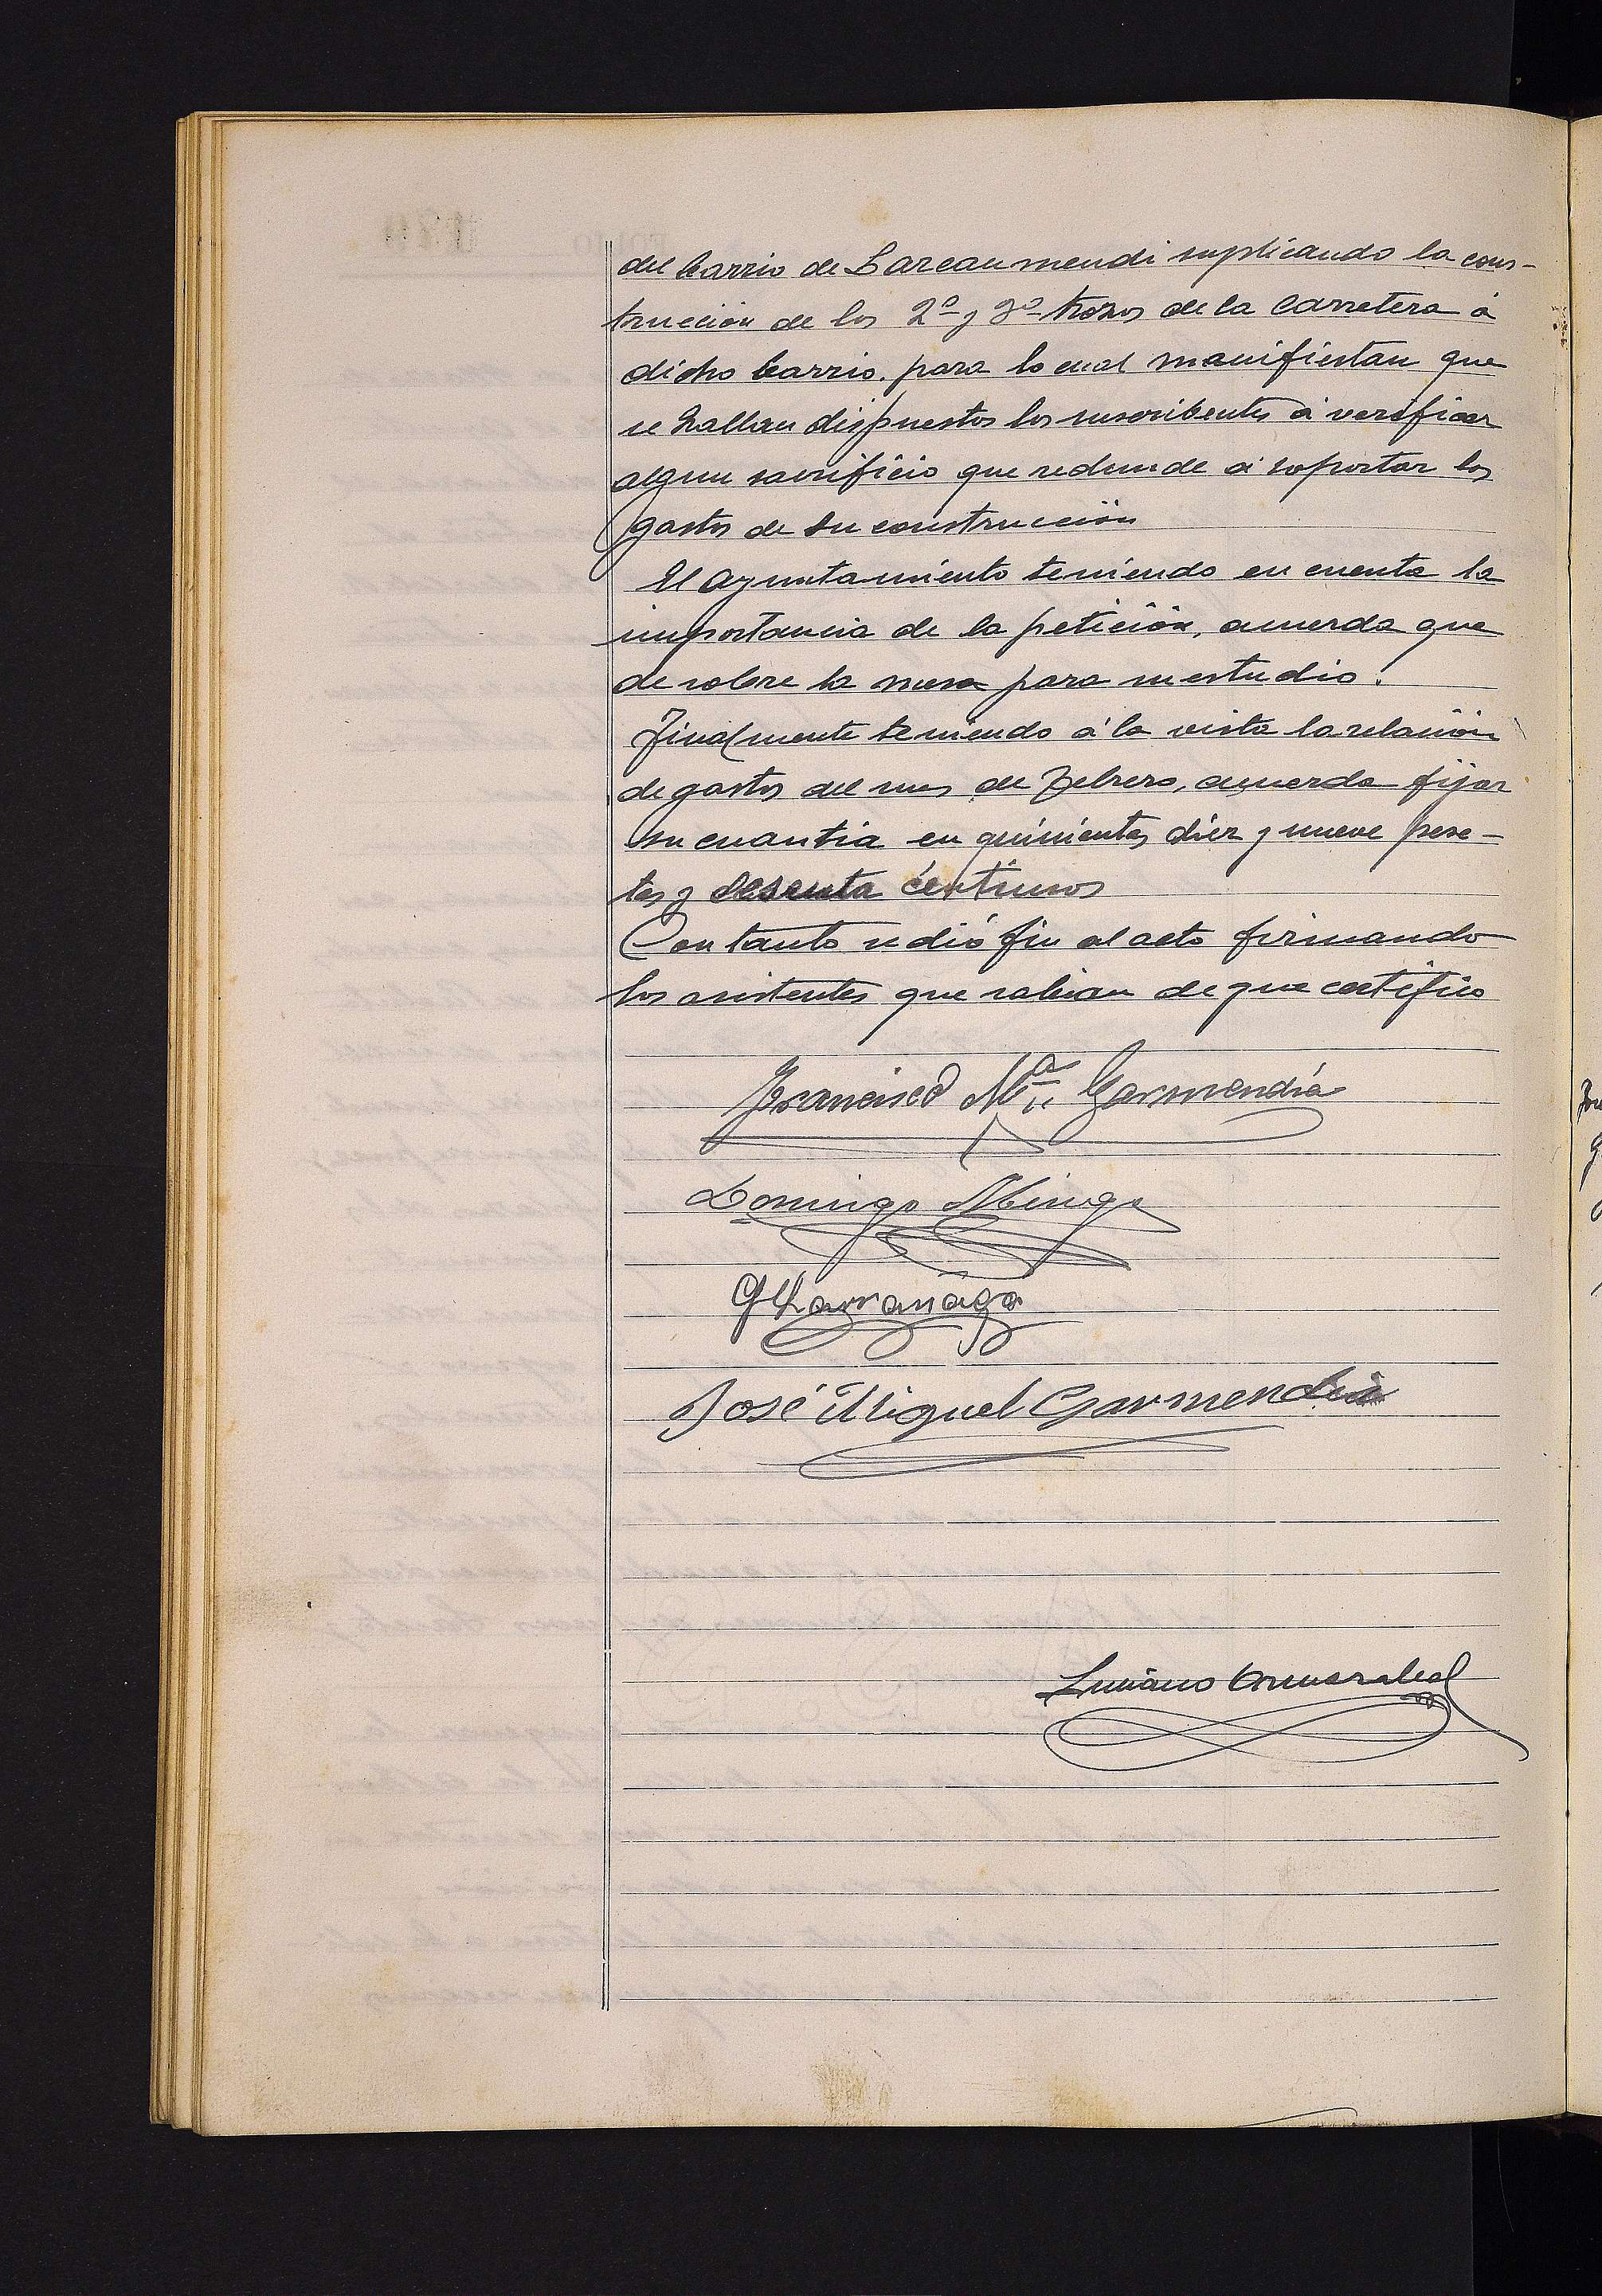 del barrio de Larcaumendi suplicando la cons-
trucción de los 2º y 3º trozos de la carretera á
dicho barrio, para lo cual manifiestan que
se hallan dispuestos los suscribentes á verificar
algun sacrificio que redunde á soportar los
gastos de su construcción
El Ayuntamiento teniendo en cuenta la
importancia de la petición, acuerda que
de sobre la mesa para su estudio.
Finalmente teniendo á la vista la relación
de gastos del mes de Febrero, acuerda fijar
su cuantia en quinientas diez y nueve pese-
tas y céntimos
Con tanto se dió fin al acto firmando
los asistentes que sabian de que certifico
Francisco Mª Garmendia
Domingo
Larrañaga
José Miguel Garmendia
Luciano